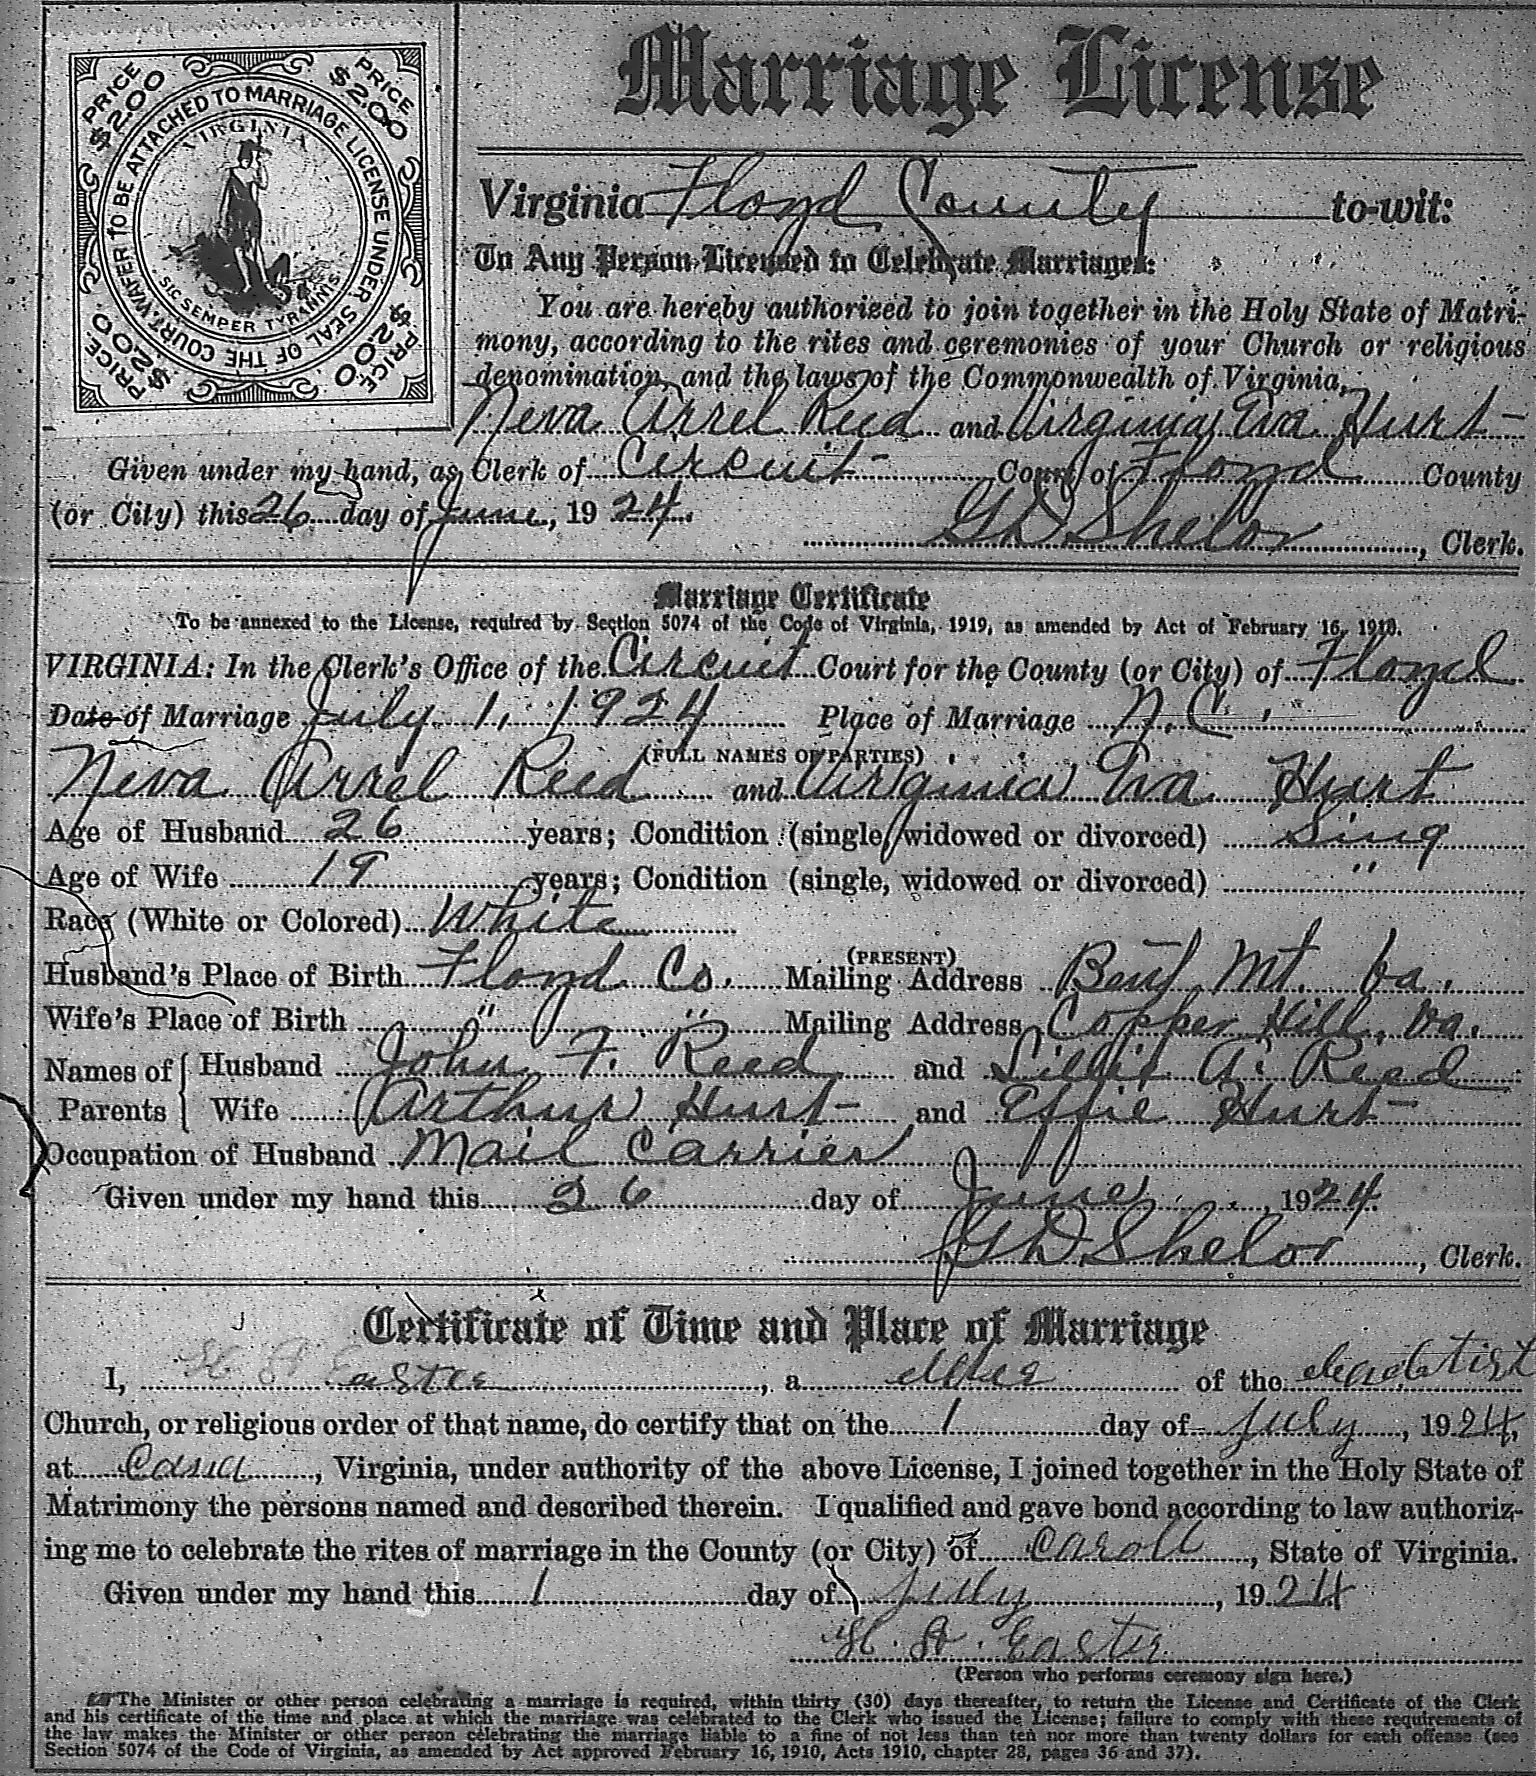 Marriage License
PRICE $2.00 PRICE $2.00
WAFER TO BE ATTACHED TO MARRIAGE LICENSE UNDER SEAL OF THE COURT.
VIRGINIA
SIC SEMPER TYRANNIS
PRICE $2.00 PRICE $2.00
Virginia Floyd County to-wit:
To Any Person Licensed to Celebrate Marriages:
You are hereby authorized to join together in the Holy State of Matri-
mony, according to the rites and ceremonies of your Church or religious
denomination, and the laws of the Commonwealth of Virginia,
Neva Arrel Reed and Virginia Eva Hurt
Given under my hand, as Clerk of Circuit Court of Floyd County
(or City) this 26 day of June, 1924.
GD Shelor, Clerk.
Marriage Certificate
To be annexed to the License, required by Section 5074 of the Code of Virginia, 1919, as amended by Act of February 16, 1910.
VIRGINIA: In the Clerk's Office of the Circuit Court for the County (or City) of Floyd
Date of Marriage July 1, 1924 Place of Marriage N.C.
(FULL NAMES OF PARTIES)
Neva Arrel Reed and Virginia Eva Hurt
Age of Husband 26 years; Condition (single, widowed or divorced) Sing
Age of Wife 19 years; Condition (single, widowed or divorced) "
Race (White or Colored) White
Husband's Place of Birth Floyd Co. (PRESENT) Mailing Address Bent Mt. Va.
Wife's Place of Birth " " Mailing Address Copper Hill, Va.
Names of Parents { Husband John F. Reed and Lillie A. Reed
Wife Arthur Hurt and Effie Hurt
Occupation of Husband Mail Carrier
Given under my hand this 26 day of June, 1924.
GD Shelor, Clerk.
Certificate of Time and Place of Marriage
I, Easter, a of the
Church, or religious order of that name, do certify that on the 1 day of July, 1924,
at Cana, Virginia, under authority of the above License, I joined together in the Holy State of
Matrimony the persons named and described therein. I qualified and gave bond according to law authoriz-
ing me to celebrate the rites of marriage in the County (or City) of Caroll, State of Virginia.
Given under my hand this 1 day of July, 1924
Easter
(Person who performs ceremony sign here.)
The Minister or other person celebrating a marriage is required, within thirty (30) days thereafter, to return the License and Certificate of the Clerk
and his certificate of the time and place at which the marriage was celebrated to the Clerk who issued the License; failure to comply with these requirements of
the law makes the Minister or other person celebrating the marriage liable to a fine of not less than ten nor more than twenty dollars for each offense (see
Section 5074 of the Code of Virginia, as amended by Act approved February 16, 1910, Acts 1910, chapter 28, pages 36 and 37).